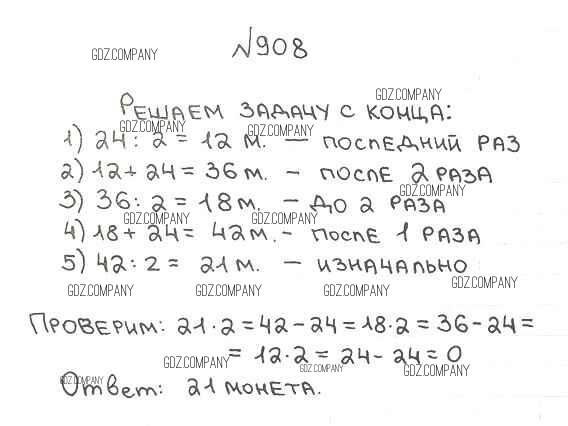 №908
GDZ.COMPANY
GDZ.COMPANY
Решаем задачу с конца:
GDZ.COMPANY GDZ.COMPANY
1) 24 : 2 = 12 м. — последний раз
2) 12 + 24 = 36 м. - после 2 раза
GDZ.COMPANY
3) 36 : 2 = 18 м. - до 2 раза
GDZ.COMPANY GDZ.COMPANY
4) 18 + 24 = 42 м. - после 1 раза
5) 42 : 2 = 21 м. - изначально
GDZ.COMPANY GDZ.COMPANY GDZ.COMPANY GDZ.COMPANY
Проверим: 21 · 2 = 42 - 24 = 18 · 2 = 36 - 24 =
= 12 · 2 = 24 - 24 = 0
GDZ.COMPANY GDZ.COMPANY GDZ.COMPANY
GDZ.COMPANY
Ответ: 21 монета.